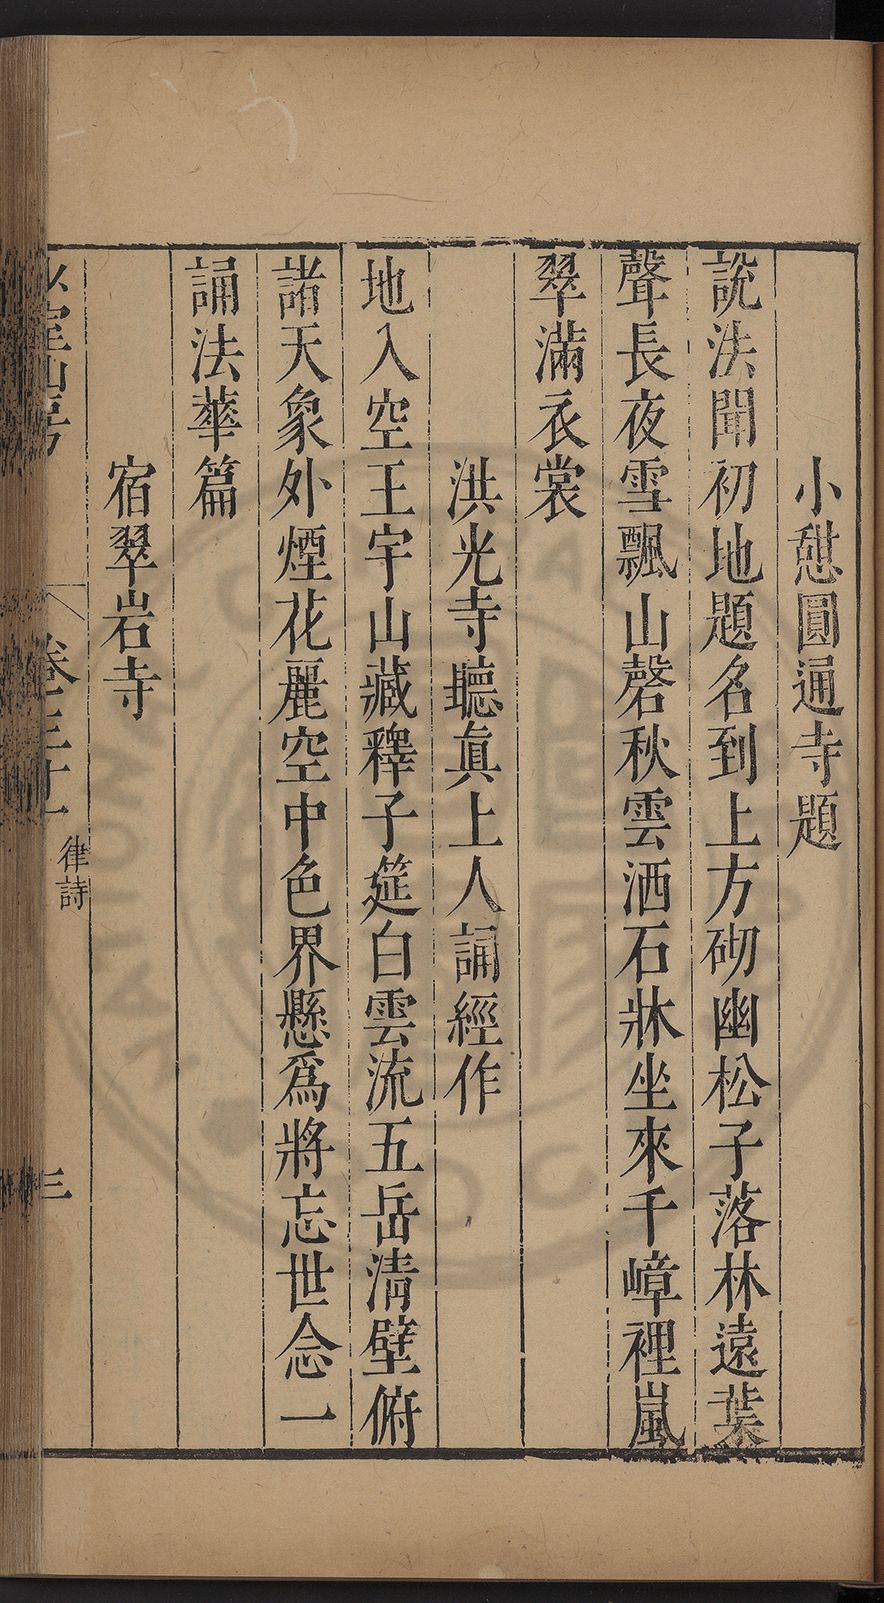 小憇圓通寺題
說法聞初地題名到上方砌幽松子落林遠葉
聲長夜雪飄山磬秋雲洒石牀坐來千嶂裡嵐
翠滿衣裳
洪光寺聽眞上人誦經作
地入空王宇山藏釋子筵白雲流五岳清壁俯
諸天象外煙花麗空中色界懸爲將忘世念一
誦法華篇
宿翠岩寺
卷三十一
律詩
三